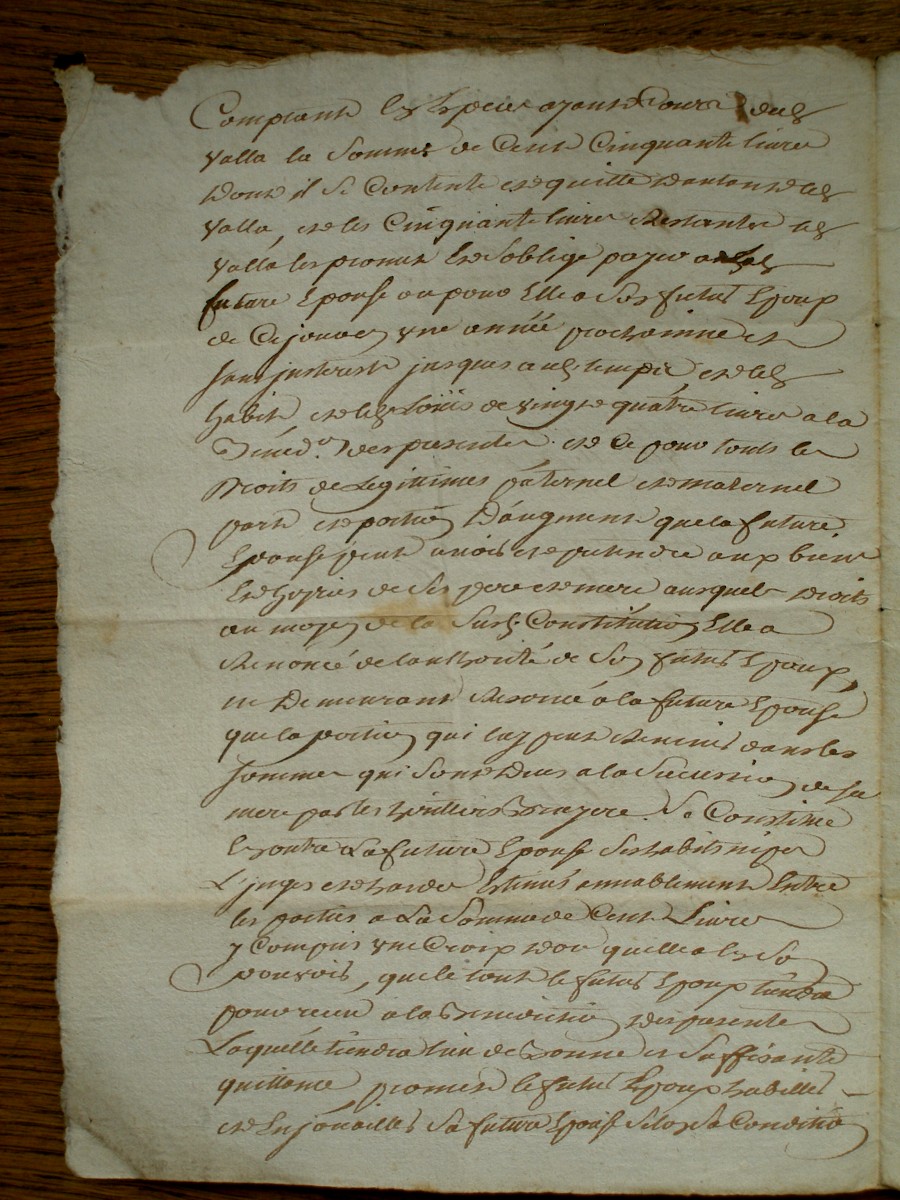 Comptant En Espèces ayant Cours ded
Valla la Somme de Cent Cinquante livres
dont il Se Contente et quitte dautant led
Valla, et les Cinquante livres Restantes led
Valla les promet Et Soblige payer a lad
future Epouse ou pour Elle a Son futur Epoux
de Cejourdhuy une année prochaine et
Sans jnterest jusques aud temps et led
habit et led Loüis de vingt quatre livres a la
Bened.on des presentes et Ce pour touts les
Droits de Legitimes paternel et maternel
part et portion Daugment que la future
Epouse peut avoir et pretendre aux biens
Et hoiries de Ses pere et mere ausquels Droits
au moyen de la Susd. Constitution Elle a
Renoncé de lauthorité de Son futur Epoux,
ne Demeurant Reservé a la future Epouse
que la portion qui luy peut Revenir dans les
Sommes qui Sont Dues a la Succession de Sa
mere par les Bruyere. Se Constitue
En outre La future Epouse Ses habits nipes
Linges et hardes Estimés amiablement Entre
les parties a La Somme de Cent Livres
y Compris une Croix dor quelle a En Son
pouvoir, que le tout le futur Epoux tiendra
pour reçu a la Benediction des presentes
Laquélle tiendra lieu de Bonne et Suffisante
quittance, promet le futur Epoux habiller
et Enjoüailler Sa future Epouse Selon Sa Condition